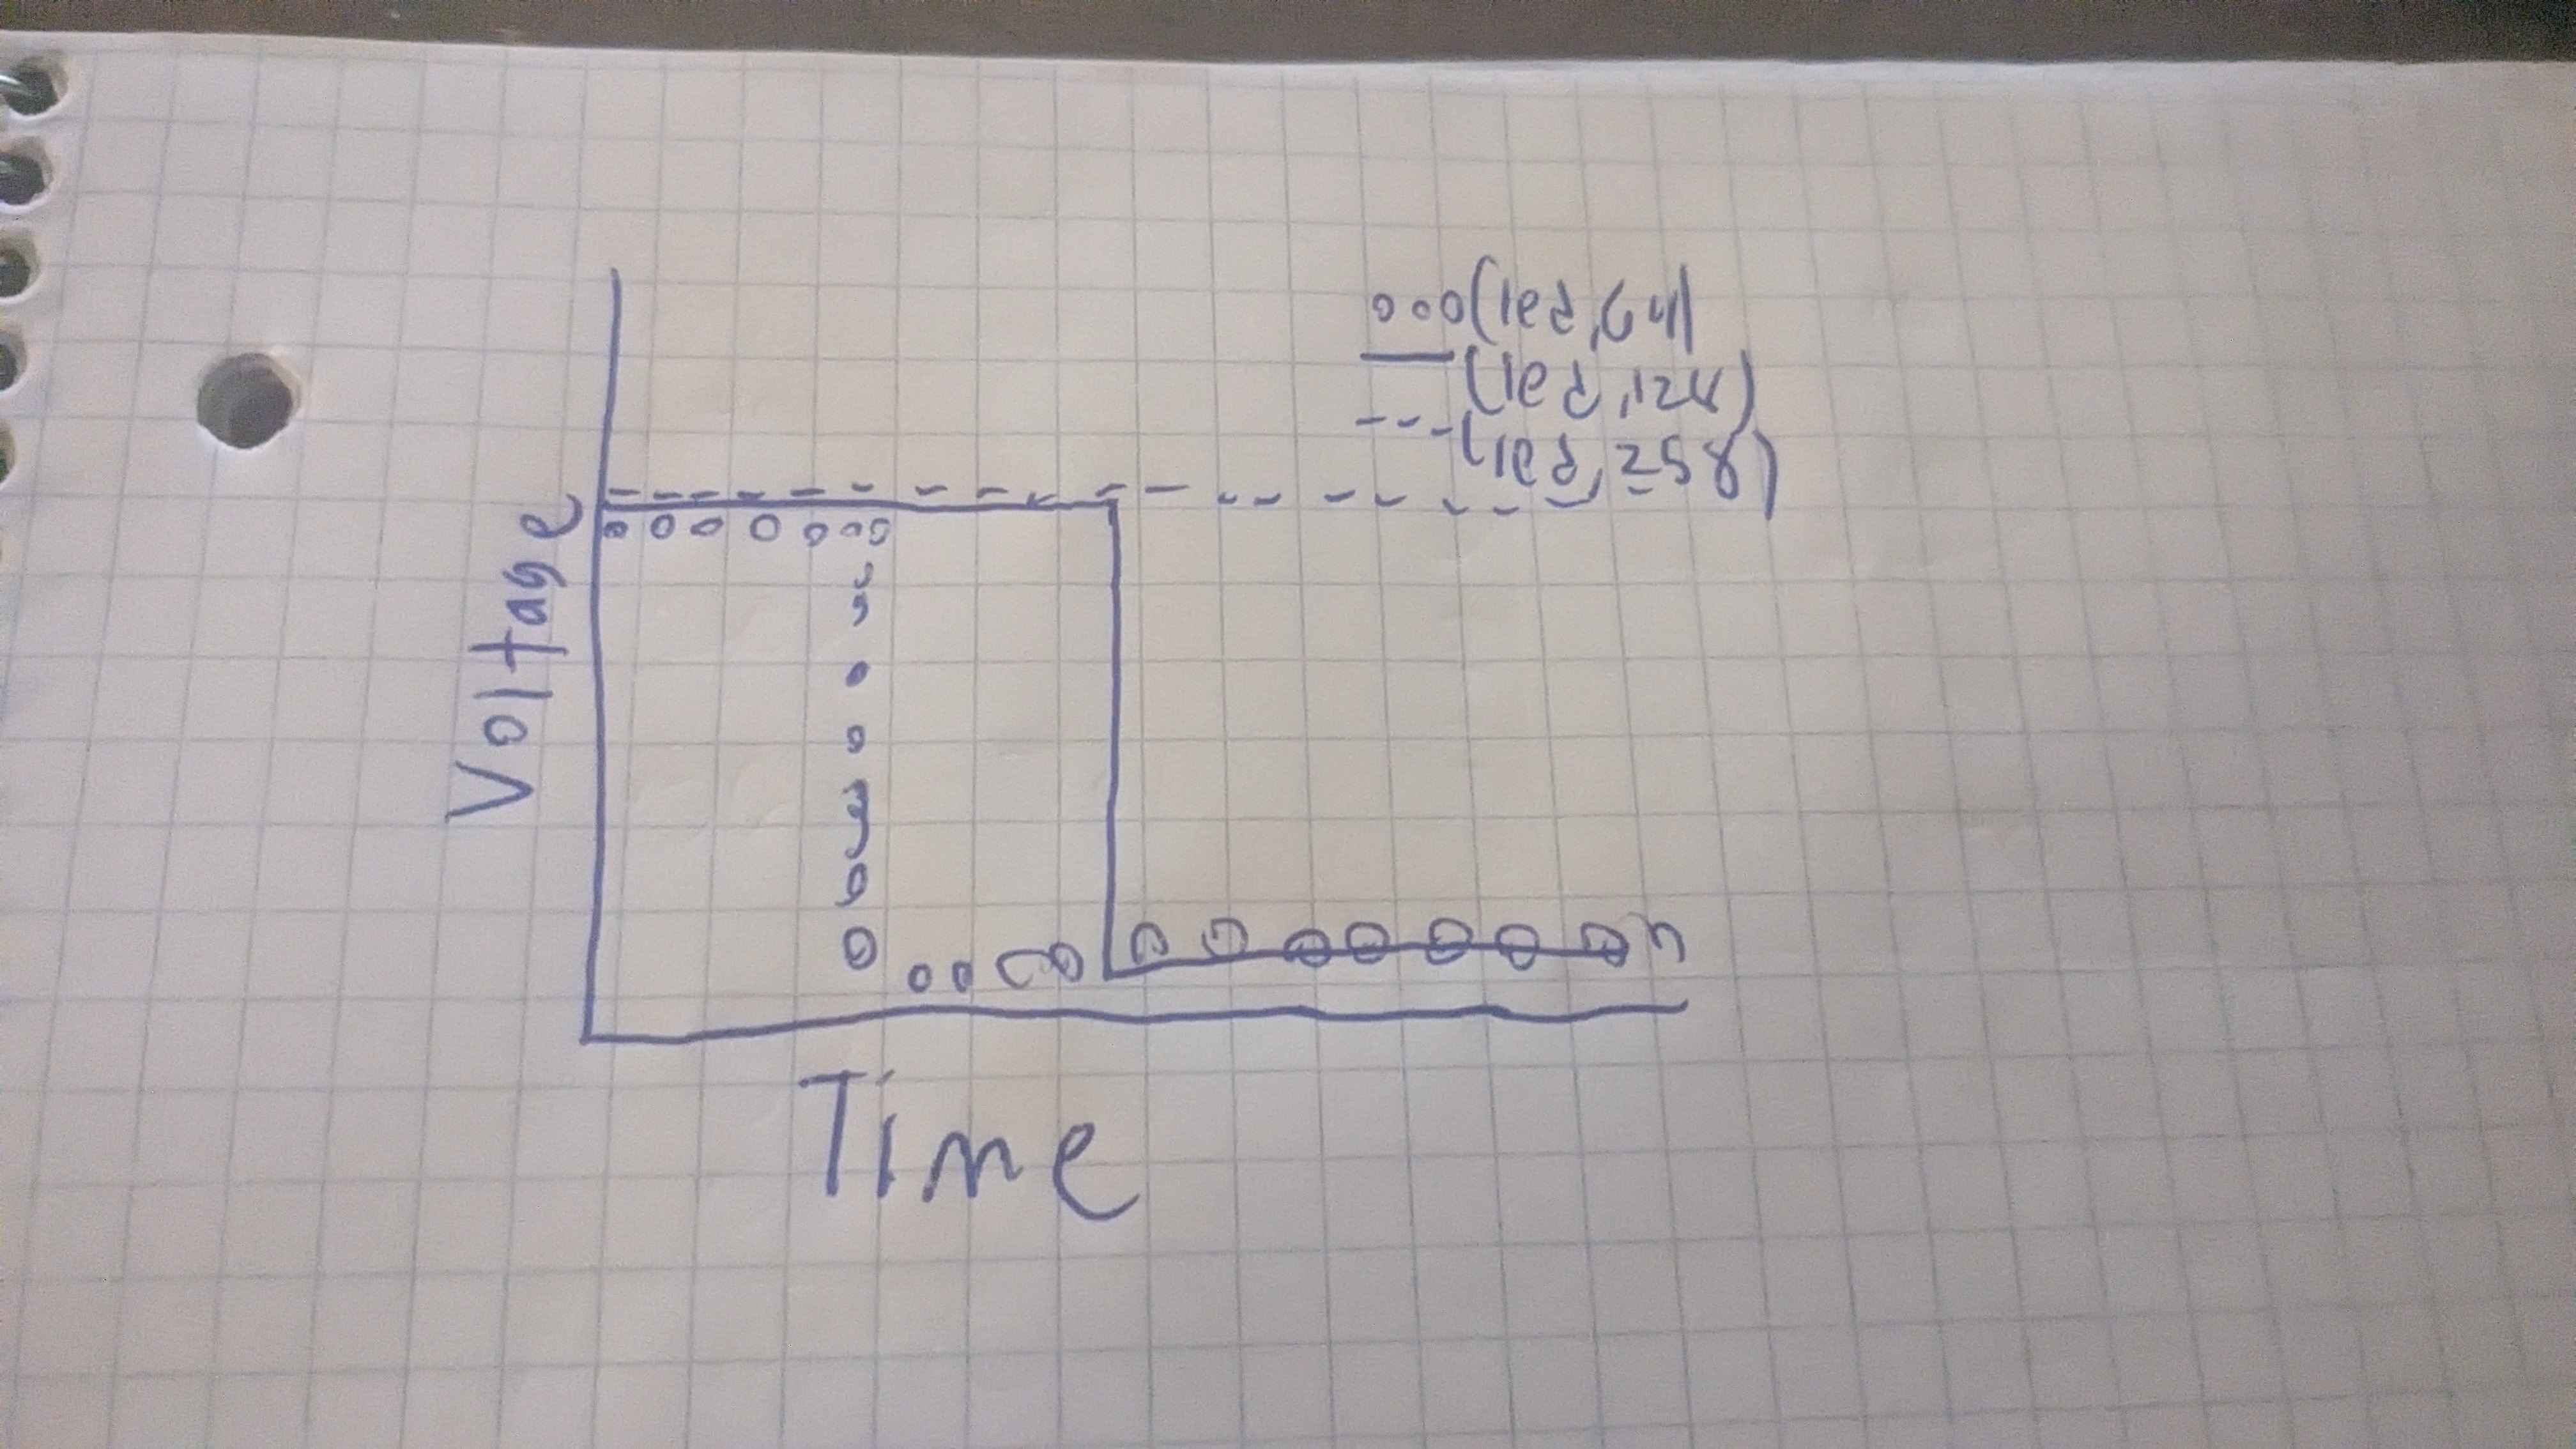 (led,64)
(led,128)
(led,258)
Voltage
Time